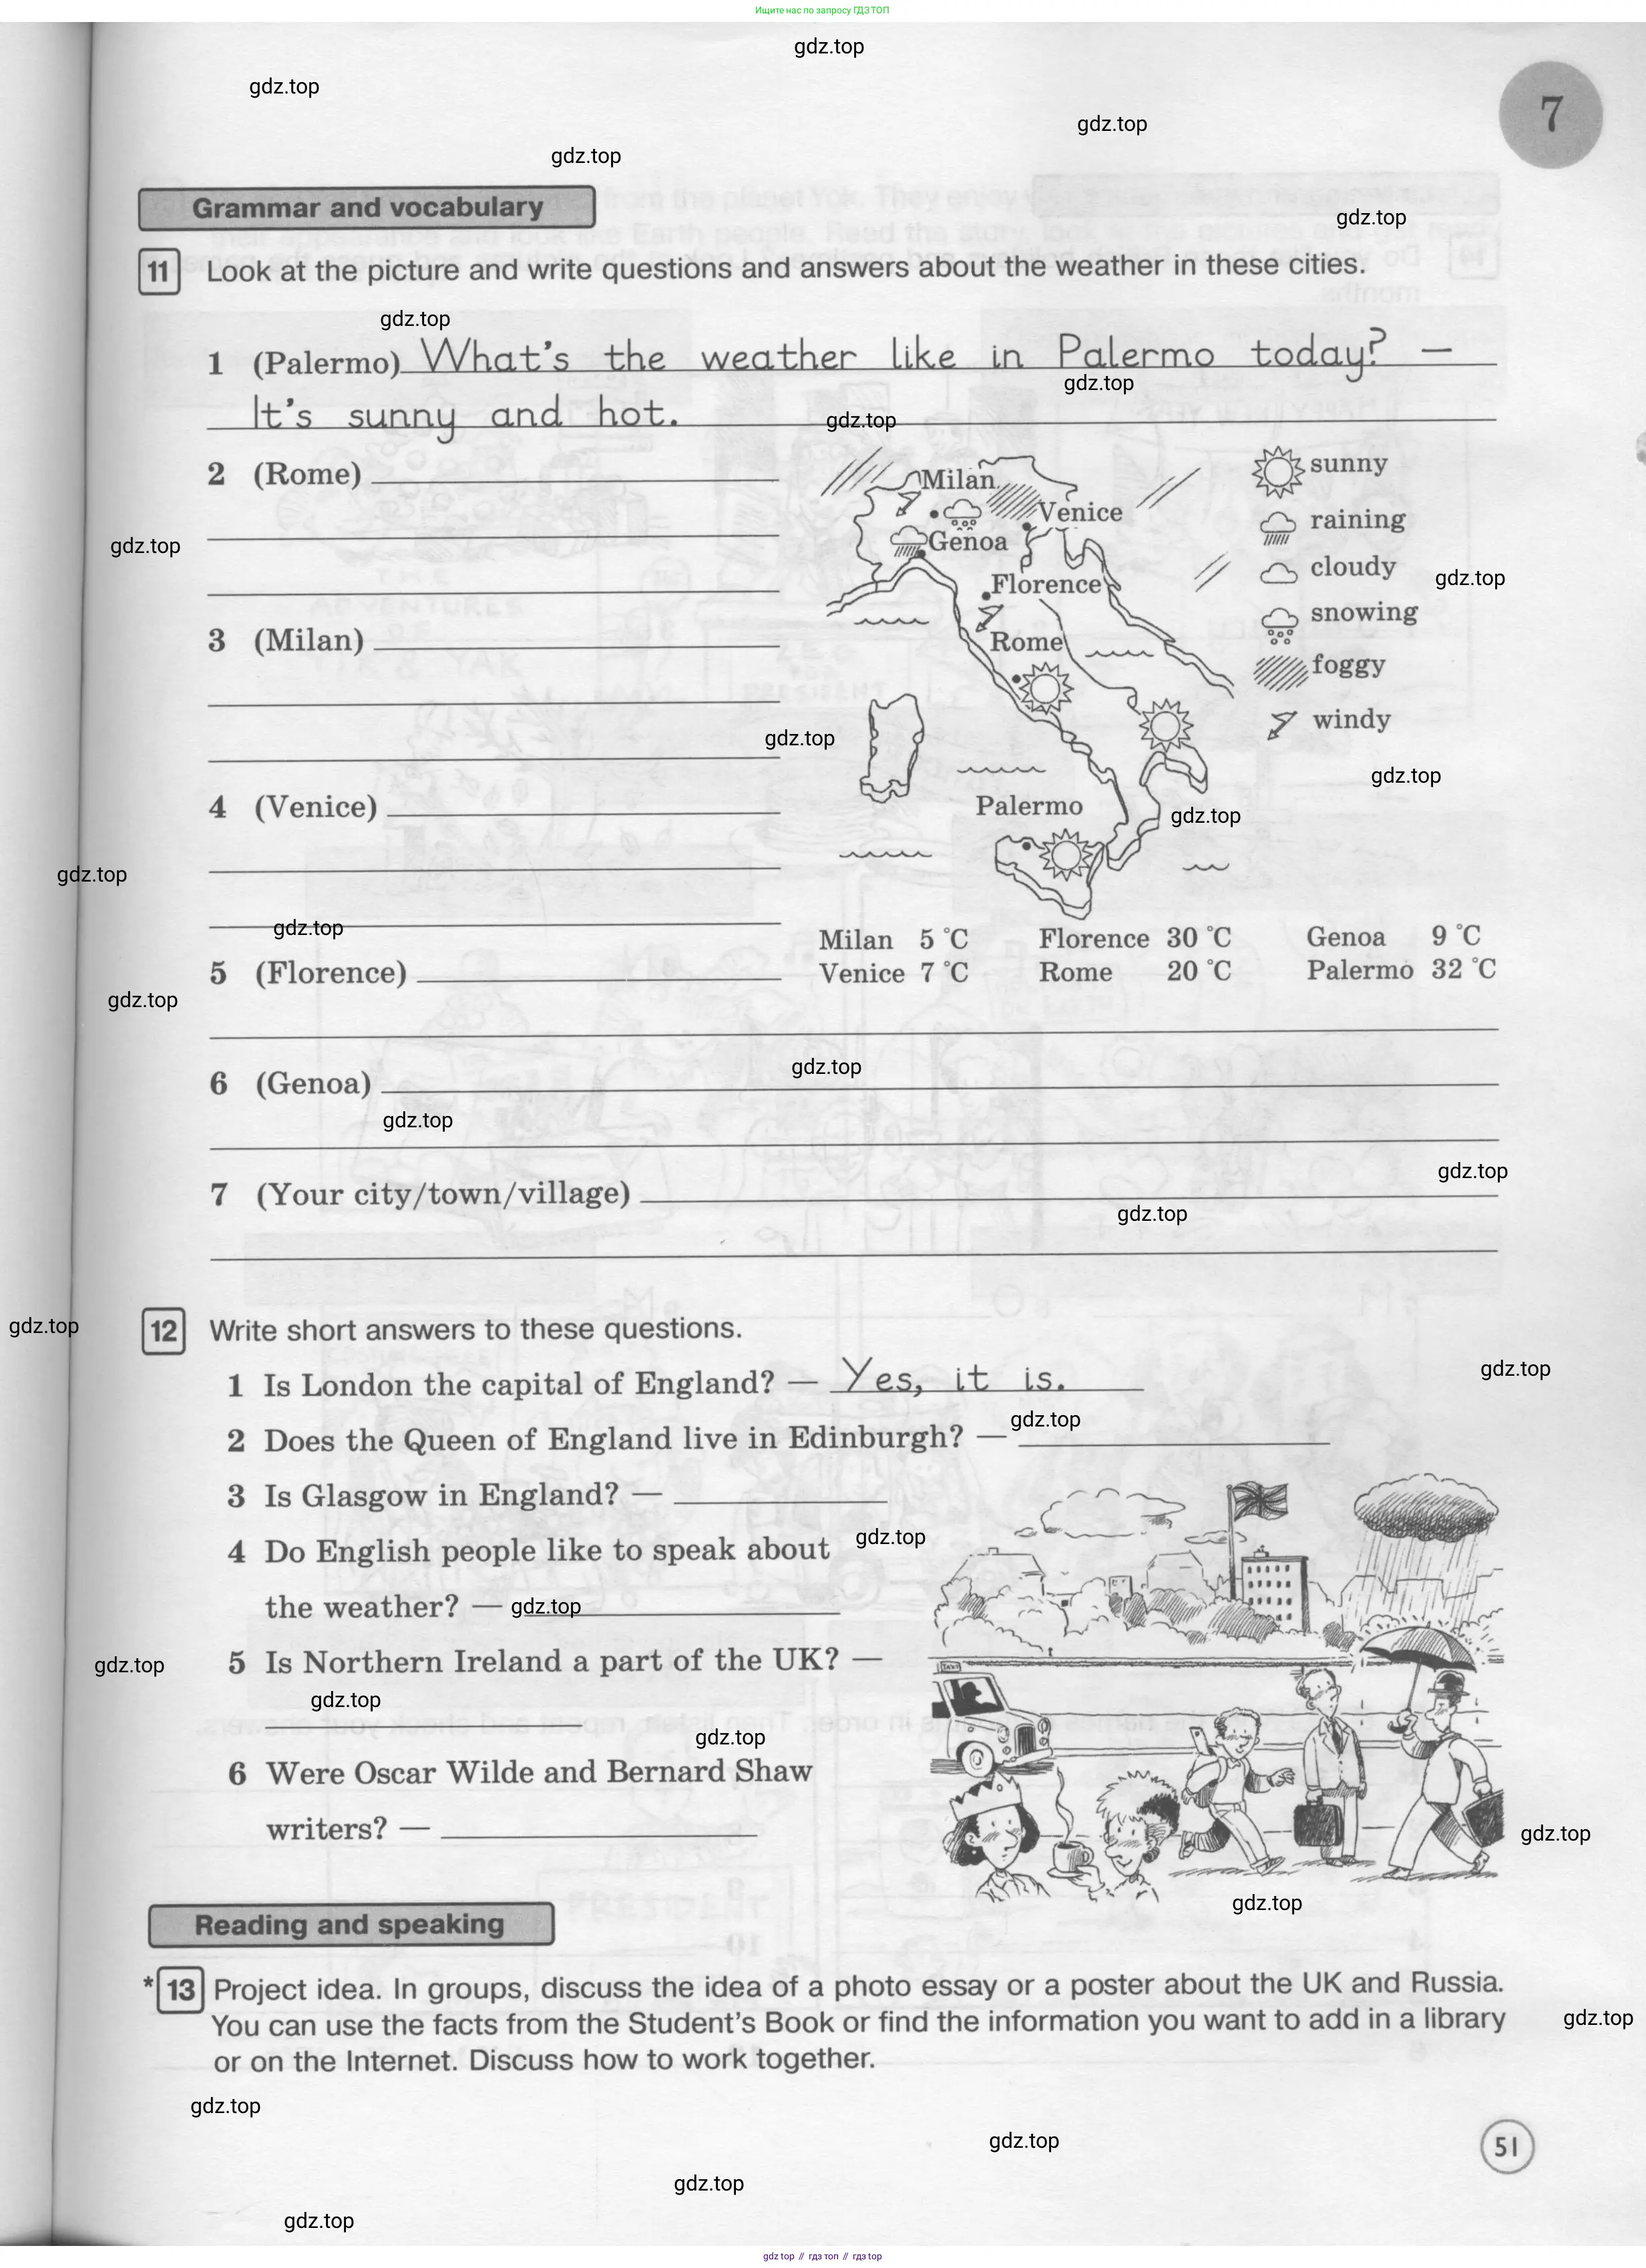 Ищите нас по запросу ГДЗ ТОП
gdz.top
gdz.top
gdz.top
7
gdz.top
Grammar and vocabulary
gdz.top
11 Look at the picture and write questions and answers about the weather in these cities.
gdz.top
1 (Palermo) What's the weather like in Palermo today? —
gdz.top
It's sunny and hot.
gdz.top
2 (Rome)
gdz.top
3 (Milan)
gdz.top
4 (Venice)
gdz.top
gdz.top
5 (Florence)
gdz.top
Milan
Venice
Genoa
Florence
Rome
Palermo
gdz.top
sunny
raining
cloudy
gdz.top
snowing
foggy
windy
gdz.top
Milan 5 °C Florence 30 °C Genoa 9 °C
Venice 7 °C Rome 20 °C Palermo 32 °C
gdz.top
6 (Genoa)
gdz.top
gdz.top
7 (Your city/town/village)
gdz.top
gdz.top
12 Write short answers to these questions.
gdz.top
1 Is London the capital of England? — Yes, it is.
gdz.top
2 Does the Queen of England live in Edinburgh? —
3 Is Glasgow in England? —
gdz.top
4 Do English people like to speak about
the weather? — gdz.top
5 Is Northern Ireland a part of the UK? —
gdz.top
gdz.top
gdz.top
6 Were Oscar Wilde and Bernard Shaw
writers? —
TAXI
gdz.top
gdz.top
Reading and speaking
*13 Project idea. In groups, discuss the idea of a photo essay or a poster about the UK and Russia.
You can use the facts from the Student's Book or find the information you want to add in a library
gdz.top
or on the Internet. Discuss how to work together.
gdz.top
gdz.top
51
gdz.top
gdz.top
gdz top // гдз топ // гдз top